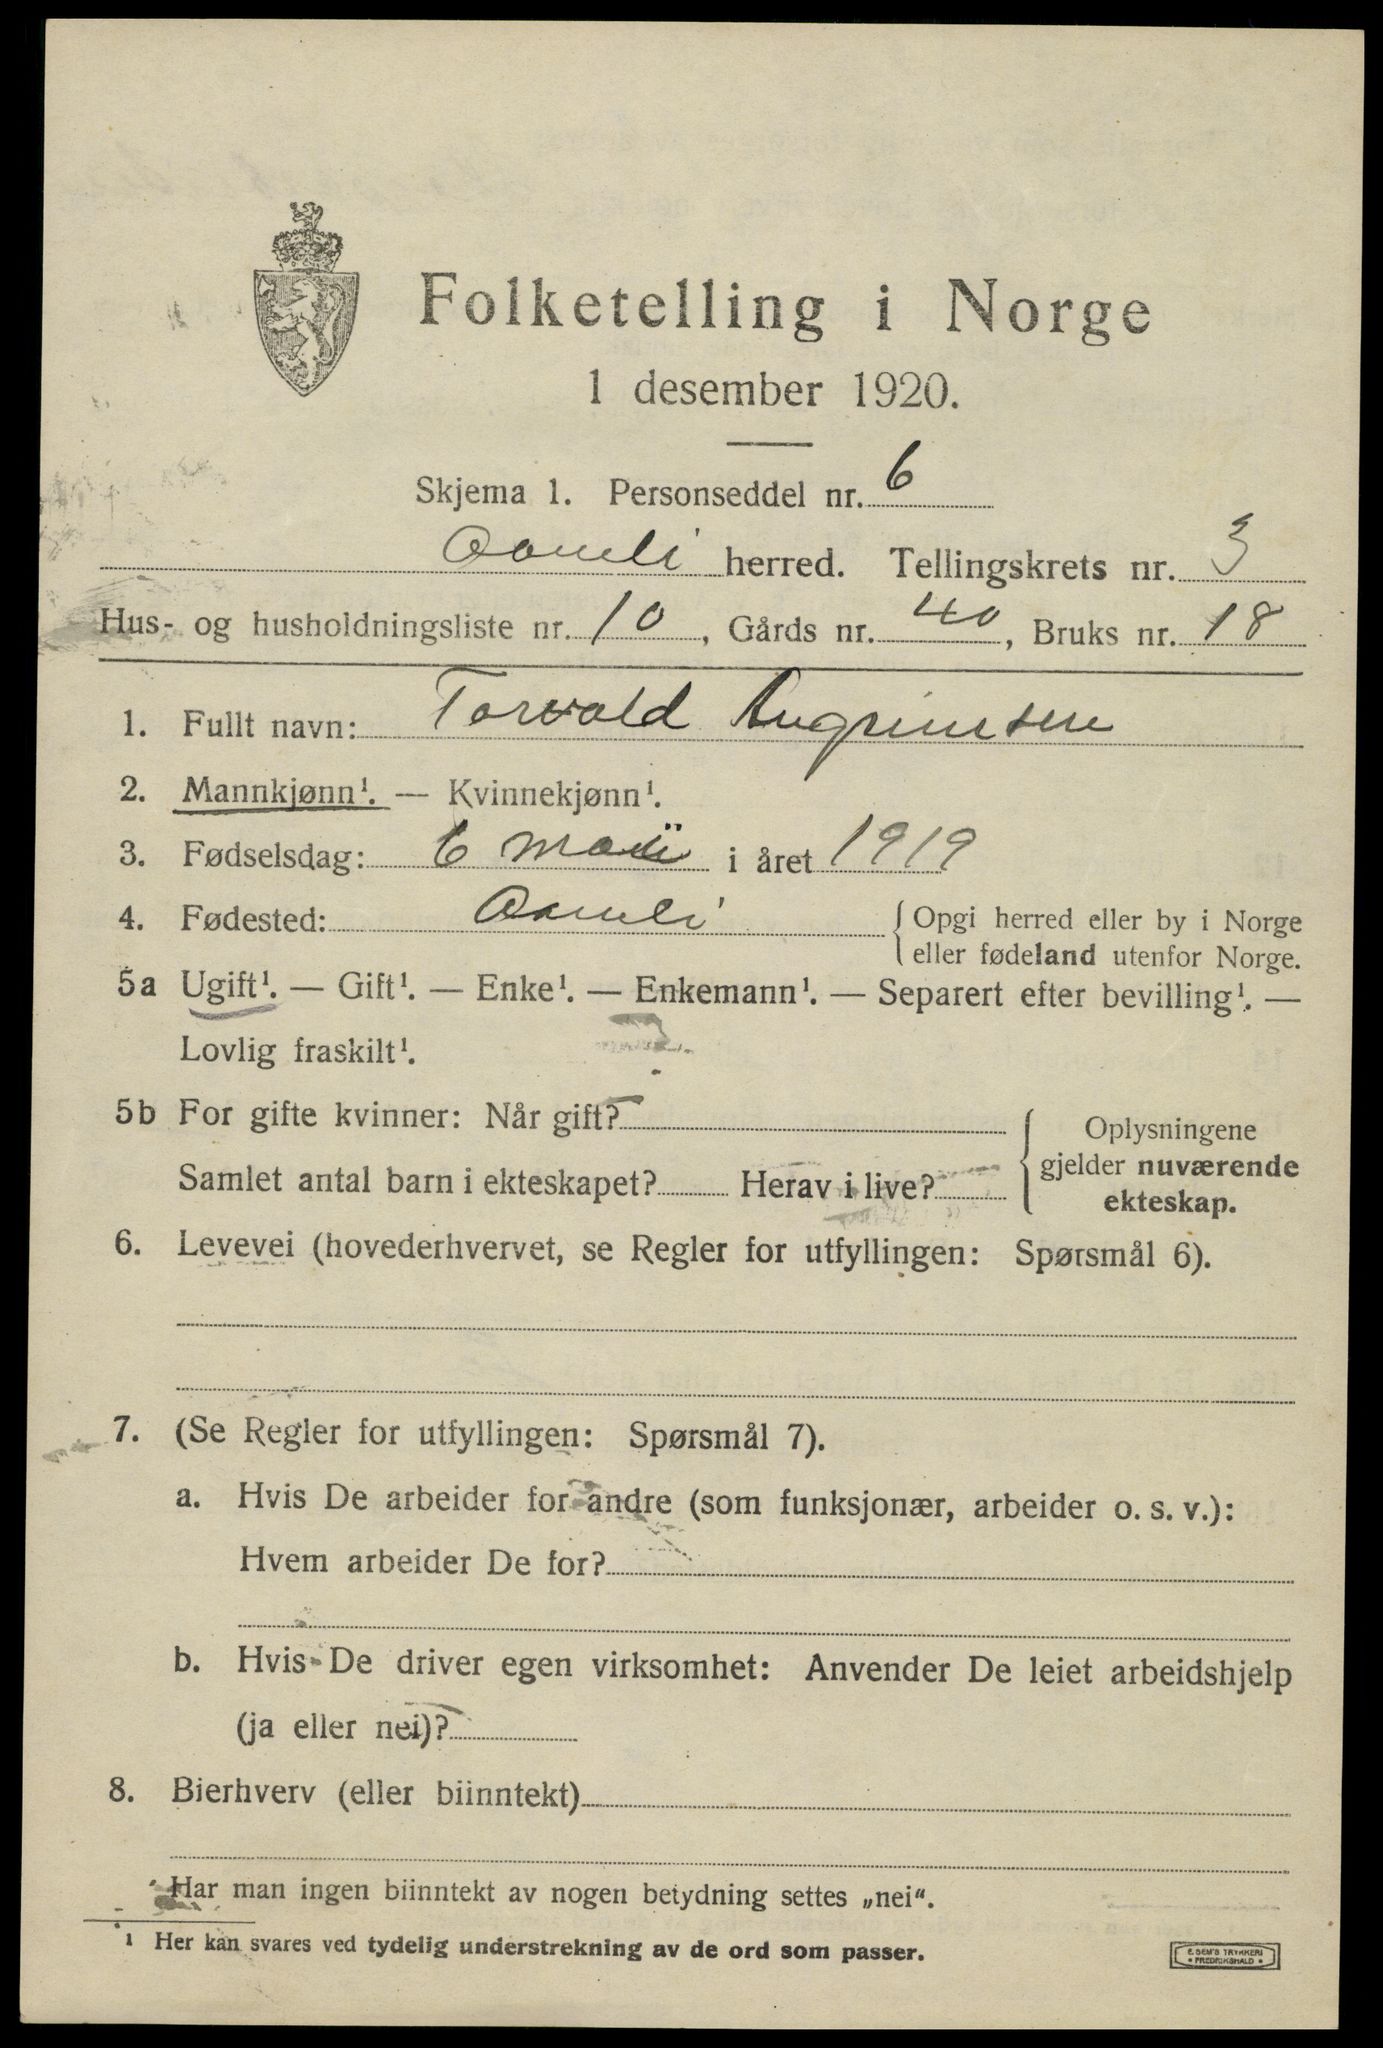 Folketelling i Norge
1 desember 1920.
Skjema 1. Personseddel nr. 6
Aamli herred. Tellingskrets nr. 3
Hus- og husholdningsliste nr. 10, Gårds nr. 40, Bruks nr. 18
1. Fullt navn: Torvald
2. Mannkjønn¹. — Kvinnekjønn¹.
3. Fødselsdag: 6 i året 1919
4. Fødested: Aamli { Opgi herred eller by i Norge
eller fødeland utenfor Norge.
5a Ugift¹. — Gift¹. — Enke¹. — Enkemann¹. — Separert efter bevilling¹. —
Lovlig fraskilt¹.
5b For gifte kvinner: Når gift?
Samlet antal barn i ekteskapet? Herav i live?
Oplysningene
gjelder nuværende
ekteskap.
6. Levevei (hovederhvervet, se Regler for utfyllingen: Spørsmål 6).
7. (Se Regler for utfyllingen: Spørsmål 7).
a. Hvis De arbeider for andre (som funksjonær, arbeider o. s. v.):
Hvem arbeider De for?
b. Hvis De driver egen virksomhet: Anvender De leiet arbeidshjelp
(ja eller nei)?
8. Bierhverv (eller biinntekt)
Har man ingen biinntekt av nogen betydning settes „nei“.
¹ Her kan svares ved tydelig understrekning av de ord som passer.
E. SEM'S TRYKKERI
• FREDRIKSHALD •